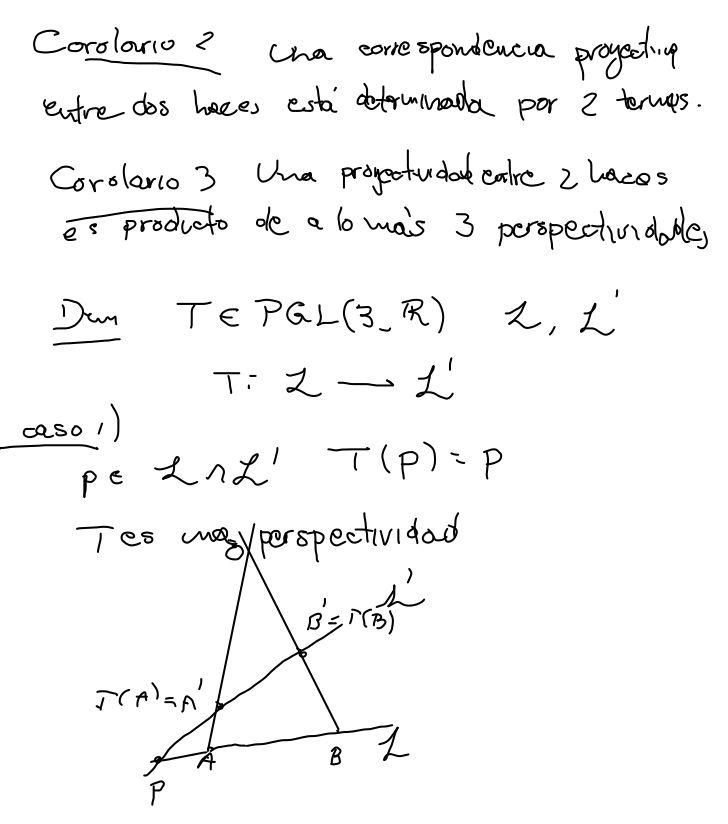 Corolario 2 Una correspondencia proyectiva
entre dos haces está determinada por 2 ternas.
Corolario 3 Una proyectividad entre 2 haces
es producto de a lo más 3 perspectividades
Dem T ∈ PGL(3, ℝ) L, L'
T: L → L'
caso 1)
p ∈ L ∩ L' T(p) = p
T es una perspectividad
L'
B' = T(B)
T(A) = A'
A B L
P